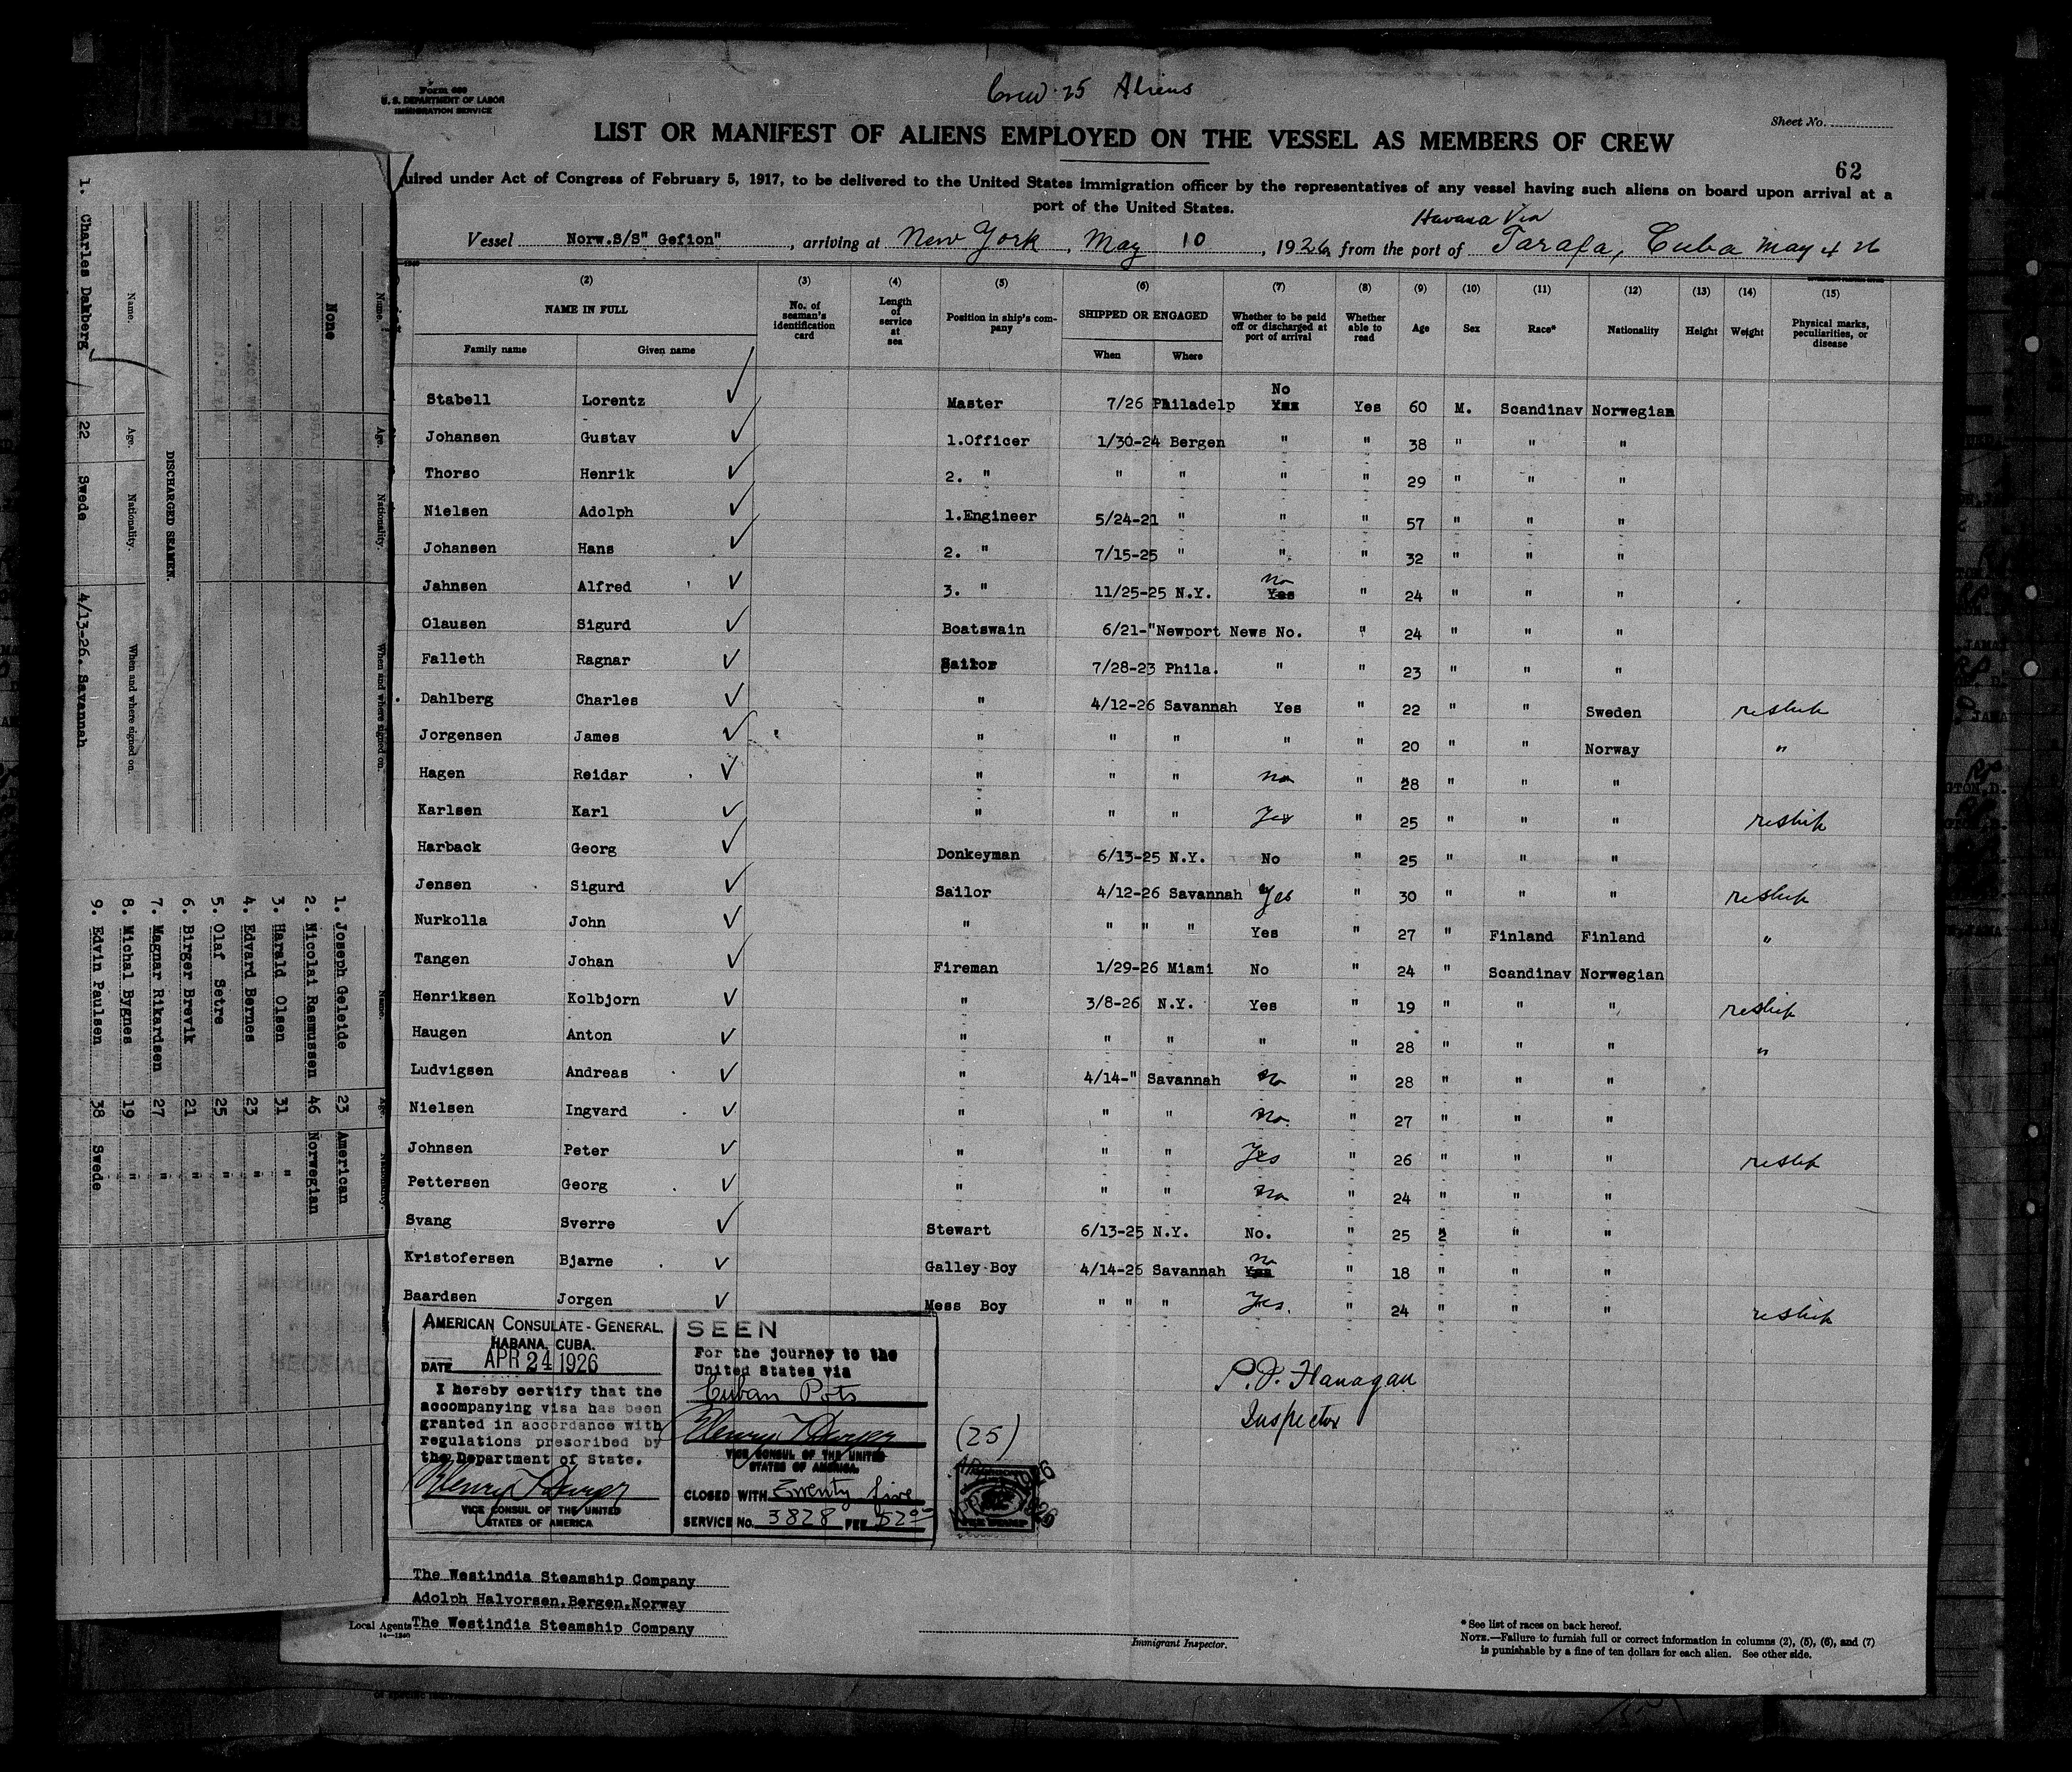 Crew 25 Aliens
U. S. DEPARTMENT OF LABOR
IMMIGRATION SERVICE
Sheet No.
LIST OR MANIFEST OF ALIENS EMPLOYED ON THE VESSEL AS MEMBERS OF CREW
62
uired under Act of Congress of February 5, 1917, to be delivered to the United States immigration officer by the representatives of any vessel having such aliens on board upon arrival at a
port of the United States.
Havana Via
Vessel Norw.S/S" Gefion" , arriving at New York , May 10 , 1926, from the port of Tarafa, Cuba May 4 26
(2) (3) (4) (5) (6) (7) (8) (9) (10) (11) (12) (13) (14) (15)
NAME IN FULL No. of seaman's identification card Length of service at sea Position in ship's company SHIPPED OR ENGAGED Whether to be paid off or discharged at port of arrival Whether able to read Age Sex Race* Nationality Height Weight Physical marks, peculiarities, or disease
Family name Given name When Where
Stabell Lorentz Master 7/26 Philadelp No Yes Yes 60 M. Scandinav Norwegian
Johansen Gustav 1.Officer 1/30-24 Bergen " " 38 " " "
Thorso Henrik 2. " " " " " 29 " " "
Nielsen Adolph 1.Engineer 5/24-21 " " " 57 " " "
Johansen Hans 2. " 7/15-25 " " " 32 " " "
Jahnsen Alfred 3. " 11/25-25 N.Y. no Yes " 24 " " "
Olausen Sigurd Boatswain 6/21-"Newport News No. " 24 " " "
Falleth Ragnar Sailor 7/28-23 Phila. " " 23 " " "
Dahlberg Charles " 4/12-26 Savannah Yes " 22 " " Sweden reship
Jorgensen James " " " " " 20 " " Norway "
Hagen Reidar " " " no " 28 " " "
Karlsen Karl " " " Yes " 25 " " " reship
Harback Georg Donkeyman 6/13-25 N.Y. No " 25 " " "
Jensen Sigurd Sailor 4/12-26 Savannah Yes " 30 " " " reship
Nurkolla John " " " " Yes " 27 " Finland Finland "
Tangen Johan Fireman 1/29-26 Miami No " 24 " Scandinav Norwegian
Henriksen Kolbjorn " 3/8-26 N.Y. Yes " 19 " " " reship
Haugen Anton " " " " " 28 " " " "
Ludvigsen Andreas " 4/14-" Savannah no " 28 " " "
Nielsen Ingvard " " " no " 27 " " "
Johnsen Peter " " " Yes " 26 " " " reship
Pettersen Georg " " " no " 24 " " "
Svang Sverre Stewart 6/13-25 N.Y. No. " 25 " " "
Kristofersen Bjarne Galley Boy 4/14-26 Savannah no " 18 " " "
Baardsen Jorgen Mess Boy " " " Yes. " 24 " " " reship
AMERICAN CONSULATE-GENERAL.
HABANA, CUBA.
DATE APR 24 1926
I hereby certify that the
accompanying visa has been
granted in accordance with
regulations prescribed by
the Department of State.
VICE CONSUL OF THE UNITED
STATES OF AMERICA
SEEN
For the journey to the
United States via
Cuban Pots
VICE CONSUL OF THE UNITED
STATES OF AMERICA.
CLOSED WITH Twenty five
SERVICE No. 3828 FEE
P.J. Flanagan
Inspector
(25)
The Westindia Steamship Company
Adolph Halvorsen,Bergen,Norway
Local Agents The Westindia Steamship Company
14—1240
Immigrant Inspector.
* See list of races on back hereof.
NOTE.—Failure to furnish full or correct information in columns (2), (5), (6), and (7)
is punishable by a fine of ten dollars for each alien. See other side.
None
DISCHARGED SEAMEN.
Name. Age. Nationality. When and where signed on.
1. Charles Damberg 22 Swede 4/13-26. Savannah
1. Joseph Geleide 23 American
2. Nicolai Rasmussen 46 Norwegian
3. Harald Olsen 31 "
4. Edvard Bernes 23 "
5. Olaf Setre 25 "
6. Birger Brevik 21 "
7. Magnar Rikardsen 27 "
8. Michal Bygnes 19 "
9. Edvin Paulsen 38 Swede